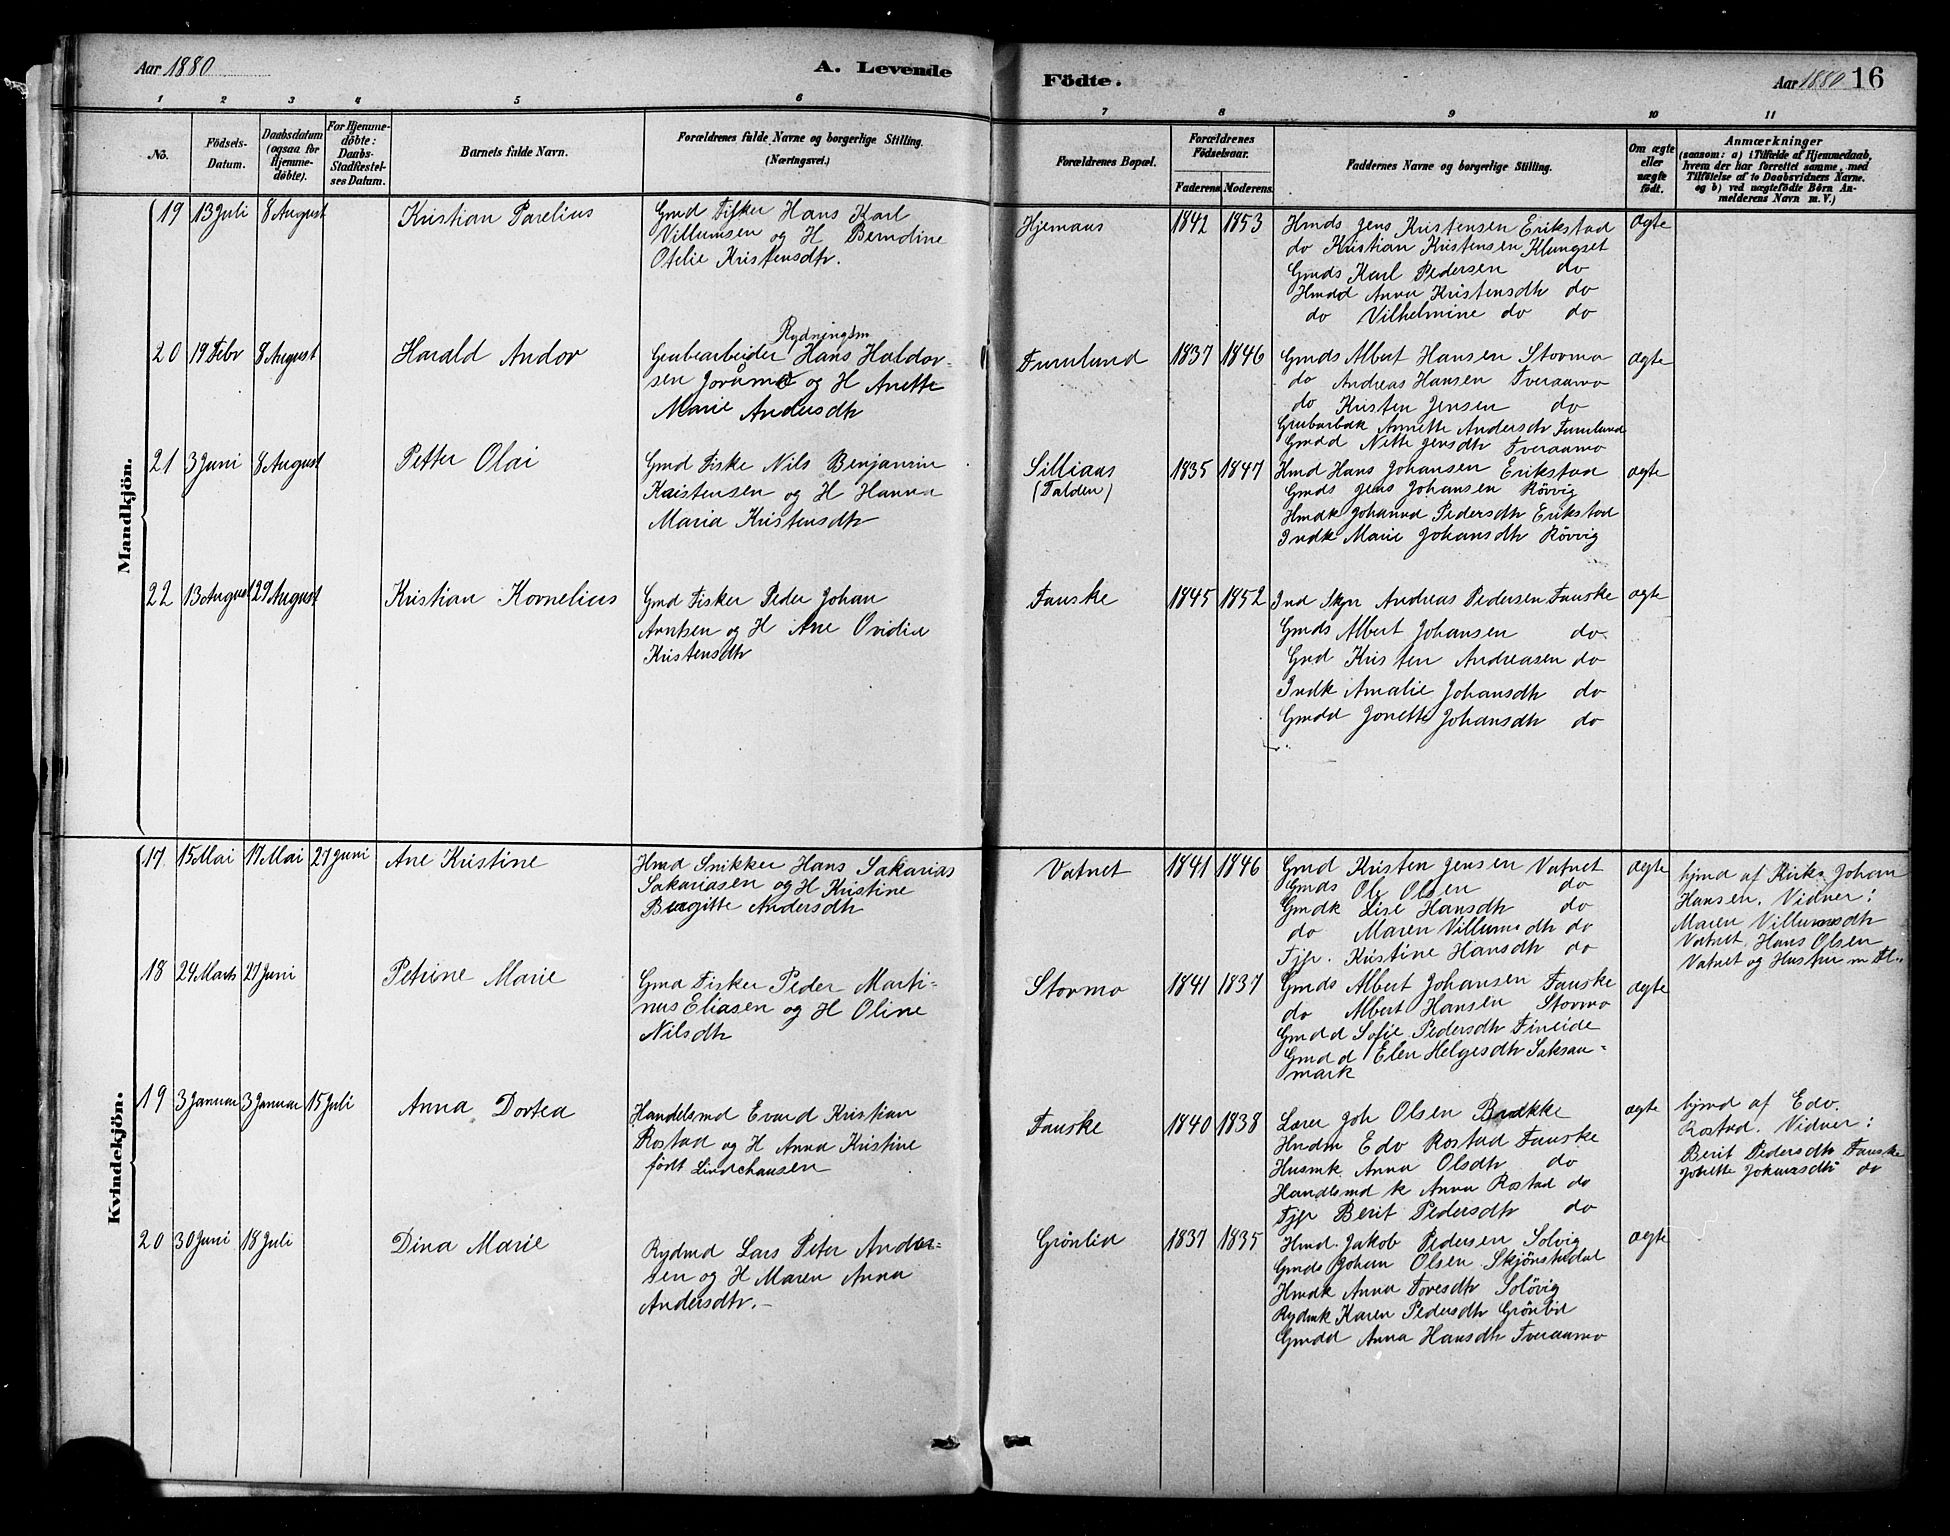 Aar 1880
A. Levende
Födte.
Aar 1880 16
1 2 3 4 5 6 7 8 9 10 11
No.
Födsels-Datum.
Daabsdatum (ogsaa for Hjemme-döbte).
For Hjemme-döbte: Daabs-Stadfæstel-ses Datum.
Barnets fulde Navn.
Forældrenes fulde Navne og borgerlige Stilling. (Næringsvei.)
Forældrenes Bopæl.
Forældrenes Födselsaar.
Faderens. Moderens.
Faddernes Navne og borgerlige Stilling.
Om ægte eller uægte födt.
Anmærkninger
(saasom: a) i Tilfælde af Hjemmedaab, hvem der har forrettet samme, med Tilföielse af to Daabsvidners Navne. og b) ved uægtefödte Börn An-melderens Navn m. V.)
Mandkjön.
19 13 Juli 8 August Kristian Parelius
Gmd Fisker Hans Karl
Villumsen og H Berndine
Otelie Kristensdtr.
Hjemaas 1842 1853
Hmds Jens Kristensen Erikstad
do Kristian Kristensen Klungset
Gmds Karl Pedersen do
Hmdd Anna Kristensdtr do
do Vilhelmine do do
ægte
20 19 Febr 8 August Harald Andor
Rydningsm
Grubearbeider Hans Haldor-
sen Joramo og H Anette
Marie Andersdtr
Furulund 1837 1846
Gmds Albert Hansen Stormo
do Andreas Hansen Tveraamo
do Kristen Jensen do
Grubarbk Annette Andersdtr Furulund
Gmdd Nette Jensdtr Tveraamo
ægte
21 3 Juni 8 August Petter Olai
Gmd Fiske Nils Benjamin
Kristensen og H Hanna
Maria Kristensdtr
Silliaas
(Valden)
1835 1847
Hmd Hans Johansen Erikstad
Gmds Jens Johansen Rövvig
Hmdk Johanna Pedersdtr Erikstad
Indk Marie Johansdtr Rövvig
ægte
22 13 August 29 August Kristian Kornelius
Gmd Fisker Peder Johan
Arntsen og H Ane Ovidia
Kristensdtr
Fauske 1845 1852
Ind Skpr Andreas Pedersen Fauske
Gmds Albert Johansen do
Gmd Kristen Andreasen do
Indk Amalie Johansdtr do
Gmdd Jonette Johansdtr do
ægte
Kvindekjön.
17 15 Mai 17 Mai 27 Juni Ane Kristine
Hmd Snikker Hans Sakarias
Sakariasen og H Kristine
Bergitte Andersdtr
Vatnet 1841 1846
Gmd Kristen Jensen Vatnet
Gmds Ole Olsen do
Gmdk Lise Hansdtr do
do Maren Villumsdtr do
Tjp. Kristine Hansdtr do
ægte
hjmd af Kirks. Johan
Hansen. Vidner:
Maren Villumsdtr
Vatnet, Hans Olsen
Vatnet og Hustru m Fl..
18 24 Marts 27 Juni Petrine Marie
Gmd Fisker Peder Marti-
nus Eliasen og H Oline
Nilsdtr
Stormo 1841 1837
Gmds Albert Johansen Fauske
do Albert Hansen Stormo
Gmdd Sofie Pedersdtr Fineide
Gmdd Elen Helgesdtr Saksen-
mark
ægte
19 3 Januar 3 Januar 15 Juli Anna Dortea
Handelsmd Evard Kristian
Rostad og H Anna Kristine
født Lindehausen
Fauske 1840 1838
Lærer Joh Olsen Brække
Hndm Edv Rostad Fauske
Husmk Anna Olsdtr do
Handlsmd k Anna Rostad do
Tjp Berit Pedersdtr do
ægte
hjmd af Edv.
Rostad. Vidner:
Berit Pedersdtr Fauske
Jonette Johansdtr do
20 30 Juni 18 Juli Dina Marie
Rydmd Lars Peter Ander-
sen og H Maren Anna
Andersdtr.
Grönlid 1837 1835
Hmd. Jakob Pedersen Solvig
Gmds Johan Olsen Skjönstudal
Hmdk Anna Toresdtr Solövig
Rydmk Karen Pedersdtr Grönlid
Gmdd Anna Hansdtr Tveraamo
ægte